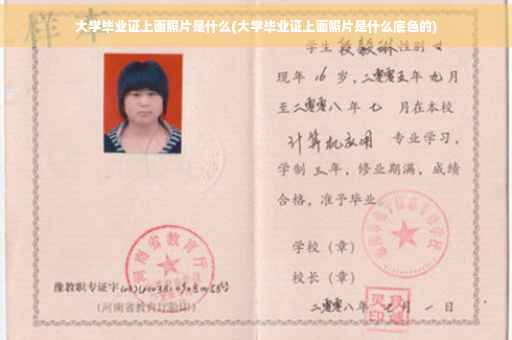 样本
大学毕业证上面照片是什么(大学毕业证上面照片是什么底色的)
学生 段毅琳 性别 女
现年 16 岁，二零零五年 九月
至二零零八年 七 月在本校
计算机应用 专业学习，
学制 三年，修业期满，成绩
合格，准予毕业
学校（章）
校长（章）
二零零八年 七月 一日
河南省教育厅
豫教职专证字
(河南省教育厅验印)